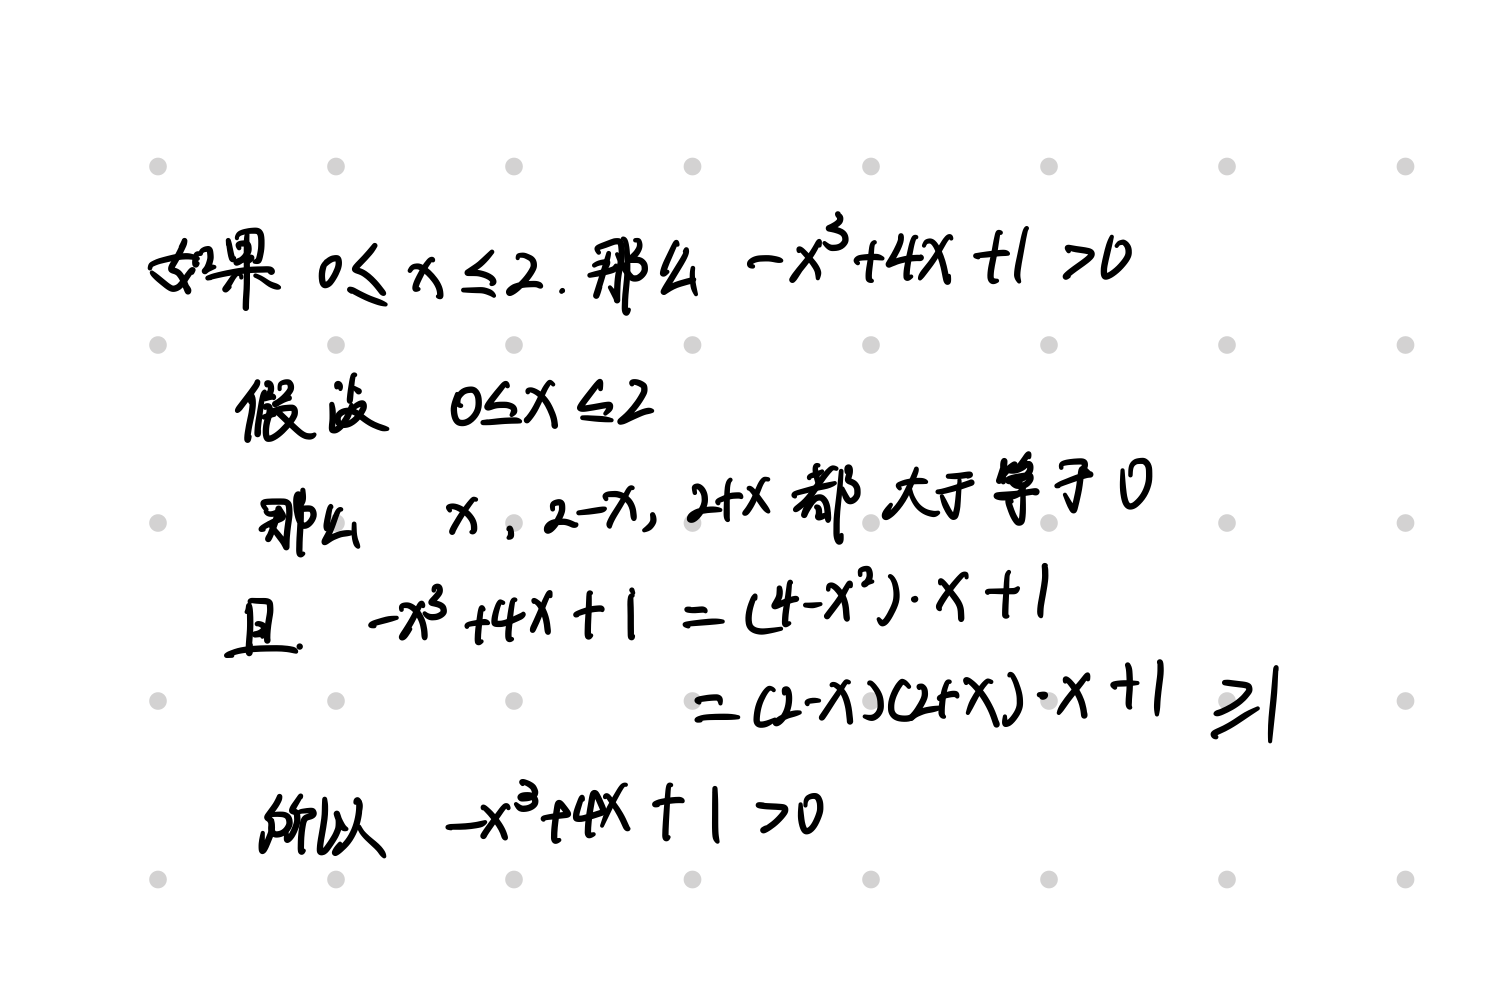 如果 0≤x≤2. 那么 -x³+4x+1>0
假设 0≤x≤2
那么 x, 2-x, 2+x 都大于等于0
且 -x³+4x+1 = (4-x²)·x+1
= (2-x)(2+x)·x+1 ≥1
所以 -x³+4x+1>0